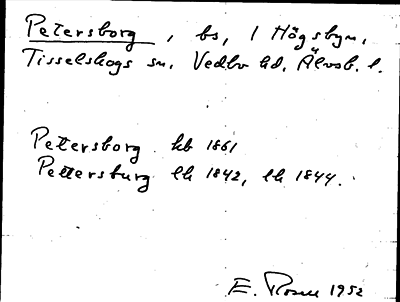 Petersborg, bs, 1 Högsbyn,
Tisselskogs sn. Vedbo hd, Älvsb. l.
Petersborg hb 1861
Pettersburg lh 1842, lh 1844.
E. Rosell 1952